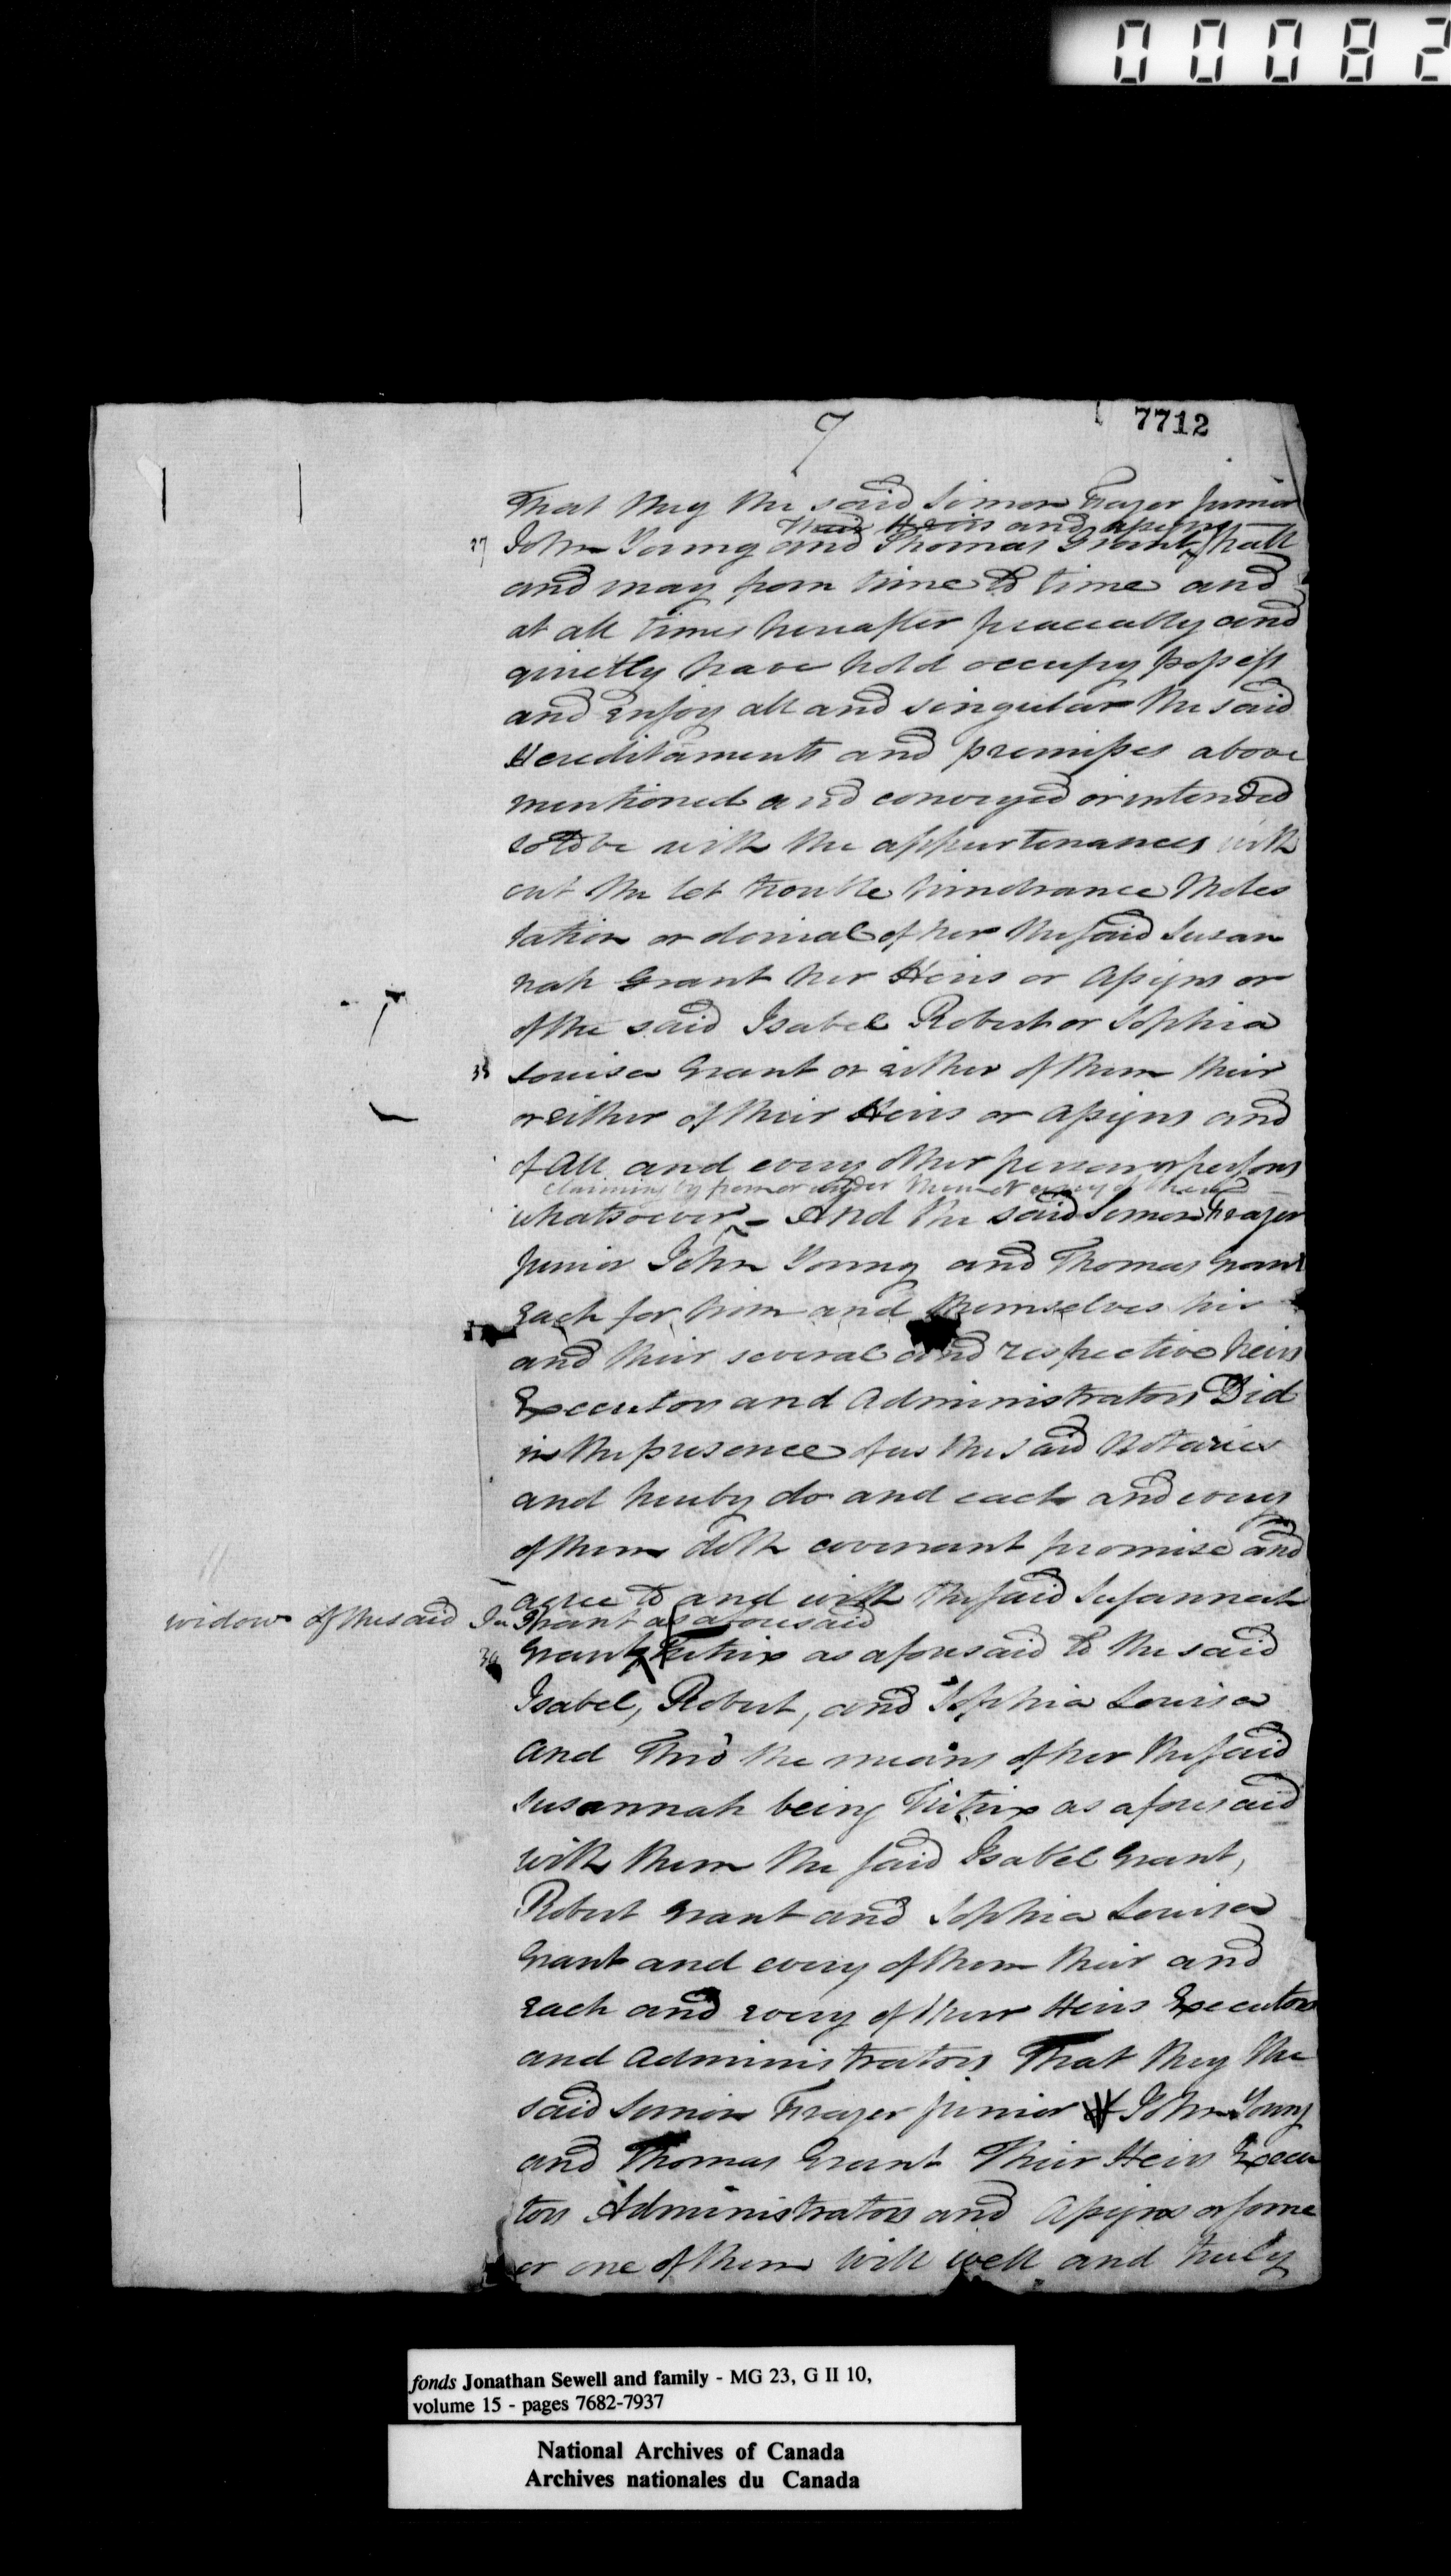 00082
7
7712
That they the said Simon Frazer Junior
their Heirs and assigns
37 John Young and Thomas Grant shall
and may from time to time and
at all times hereafter peaceably and
quietly have hold occupy possess
and enjoy all and singular the said
Hereditaments and premisses above
mentioned and conveyed or intended
so to be with the appurtenances with
out the let trouble hindrance Moles
tation or denial of her the said Susan
nah Grant her Heirs or Assigns or
of the said Isabel Robert or Sophia
38 Louisa Grant or either of them their
or either of their Heirs or Assigns and
of All and every other person or persons
claiming by from or under them or any of them
whatsoever - And the said Simon Frazer
Junior John Young and Thomas Grant
Each for him and themselves his
and their several and respective heirs
Executors and Administrators Did
in the presence of us the said Notaries
and hereby do and each and every
of them doth covenant promise and
agree to and with the said Susannah
widow of the said Grant as aforesaid
Grant Tutrix as aforesaid to the said
Isabel, Robert, and Sophia Louisa
And Thro the means of her the said
Susannah being Tutrix as aforesaid
with them the said Isabel Grant,
Robert Grant and Sophia Louisa
Grant and every of them their and
Each and every of their Heirs Executors
and Administrators That they the
said Simon Frazer Junior John Young
and Thomas Grant Their Heirs Execu
tors Administrators and Assigns or some
or one of them Will well and truly
fonds Jonathan Sewell and family - MG 23, G II 10,
volume 15 - pages 7682-7937
National Archives of Canada
Archives nationales du Canada